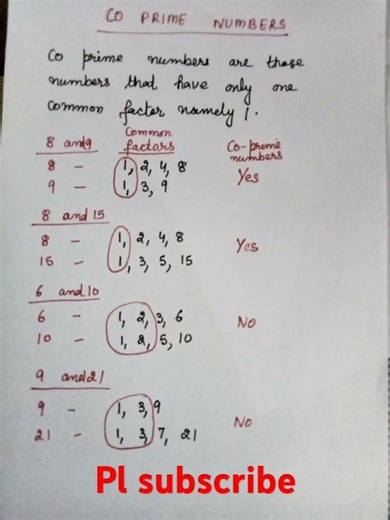 CO PRIME NUMBERS
Co prime numbers are those
numbers that have only one
common factor namely 1.
8 and 9 Common factors Co-prime numbers
8 - 1, 2, 4, 8
9 - 1, 3, 9 Yes
8 and 15
8 - 1, 2, 4, 8
15 - 1, 3, 5, 15 Yes
6 and 10
6 - 1, 2, 3, 6
10 - 1, 2, 5, 10 No
9 and 21
9 - 1, 3, 9
21 - 1, 3, 7, 21 No
Pl subscribe